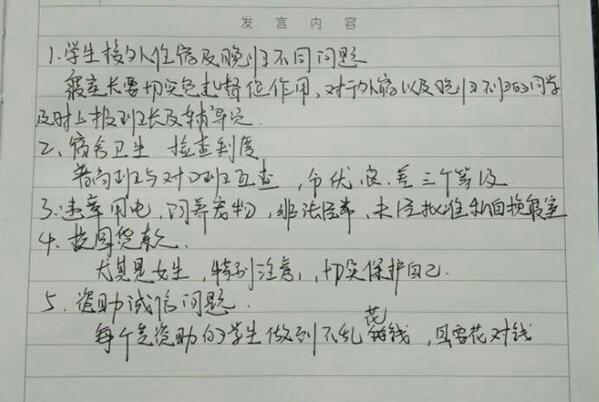 发言内容
1.学生校外住宿及晚归不同问题
寝室长要切实负起督促作用,对于外宿以及晚归不归的同学
及时上报班长及辅导员
2、宿舍卫生 检查制度
普高班与对口班互查,分优、良、差三个等级
3.违章用电,饲养宠物,非法经商,未经批准私自换寝室
4.校园贷款.
尤其是女生,特别注意,切实保护自己.
5.资助诚信问题.
每个受资助的学生做到不乱花钱,且要花对钱